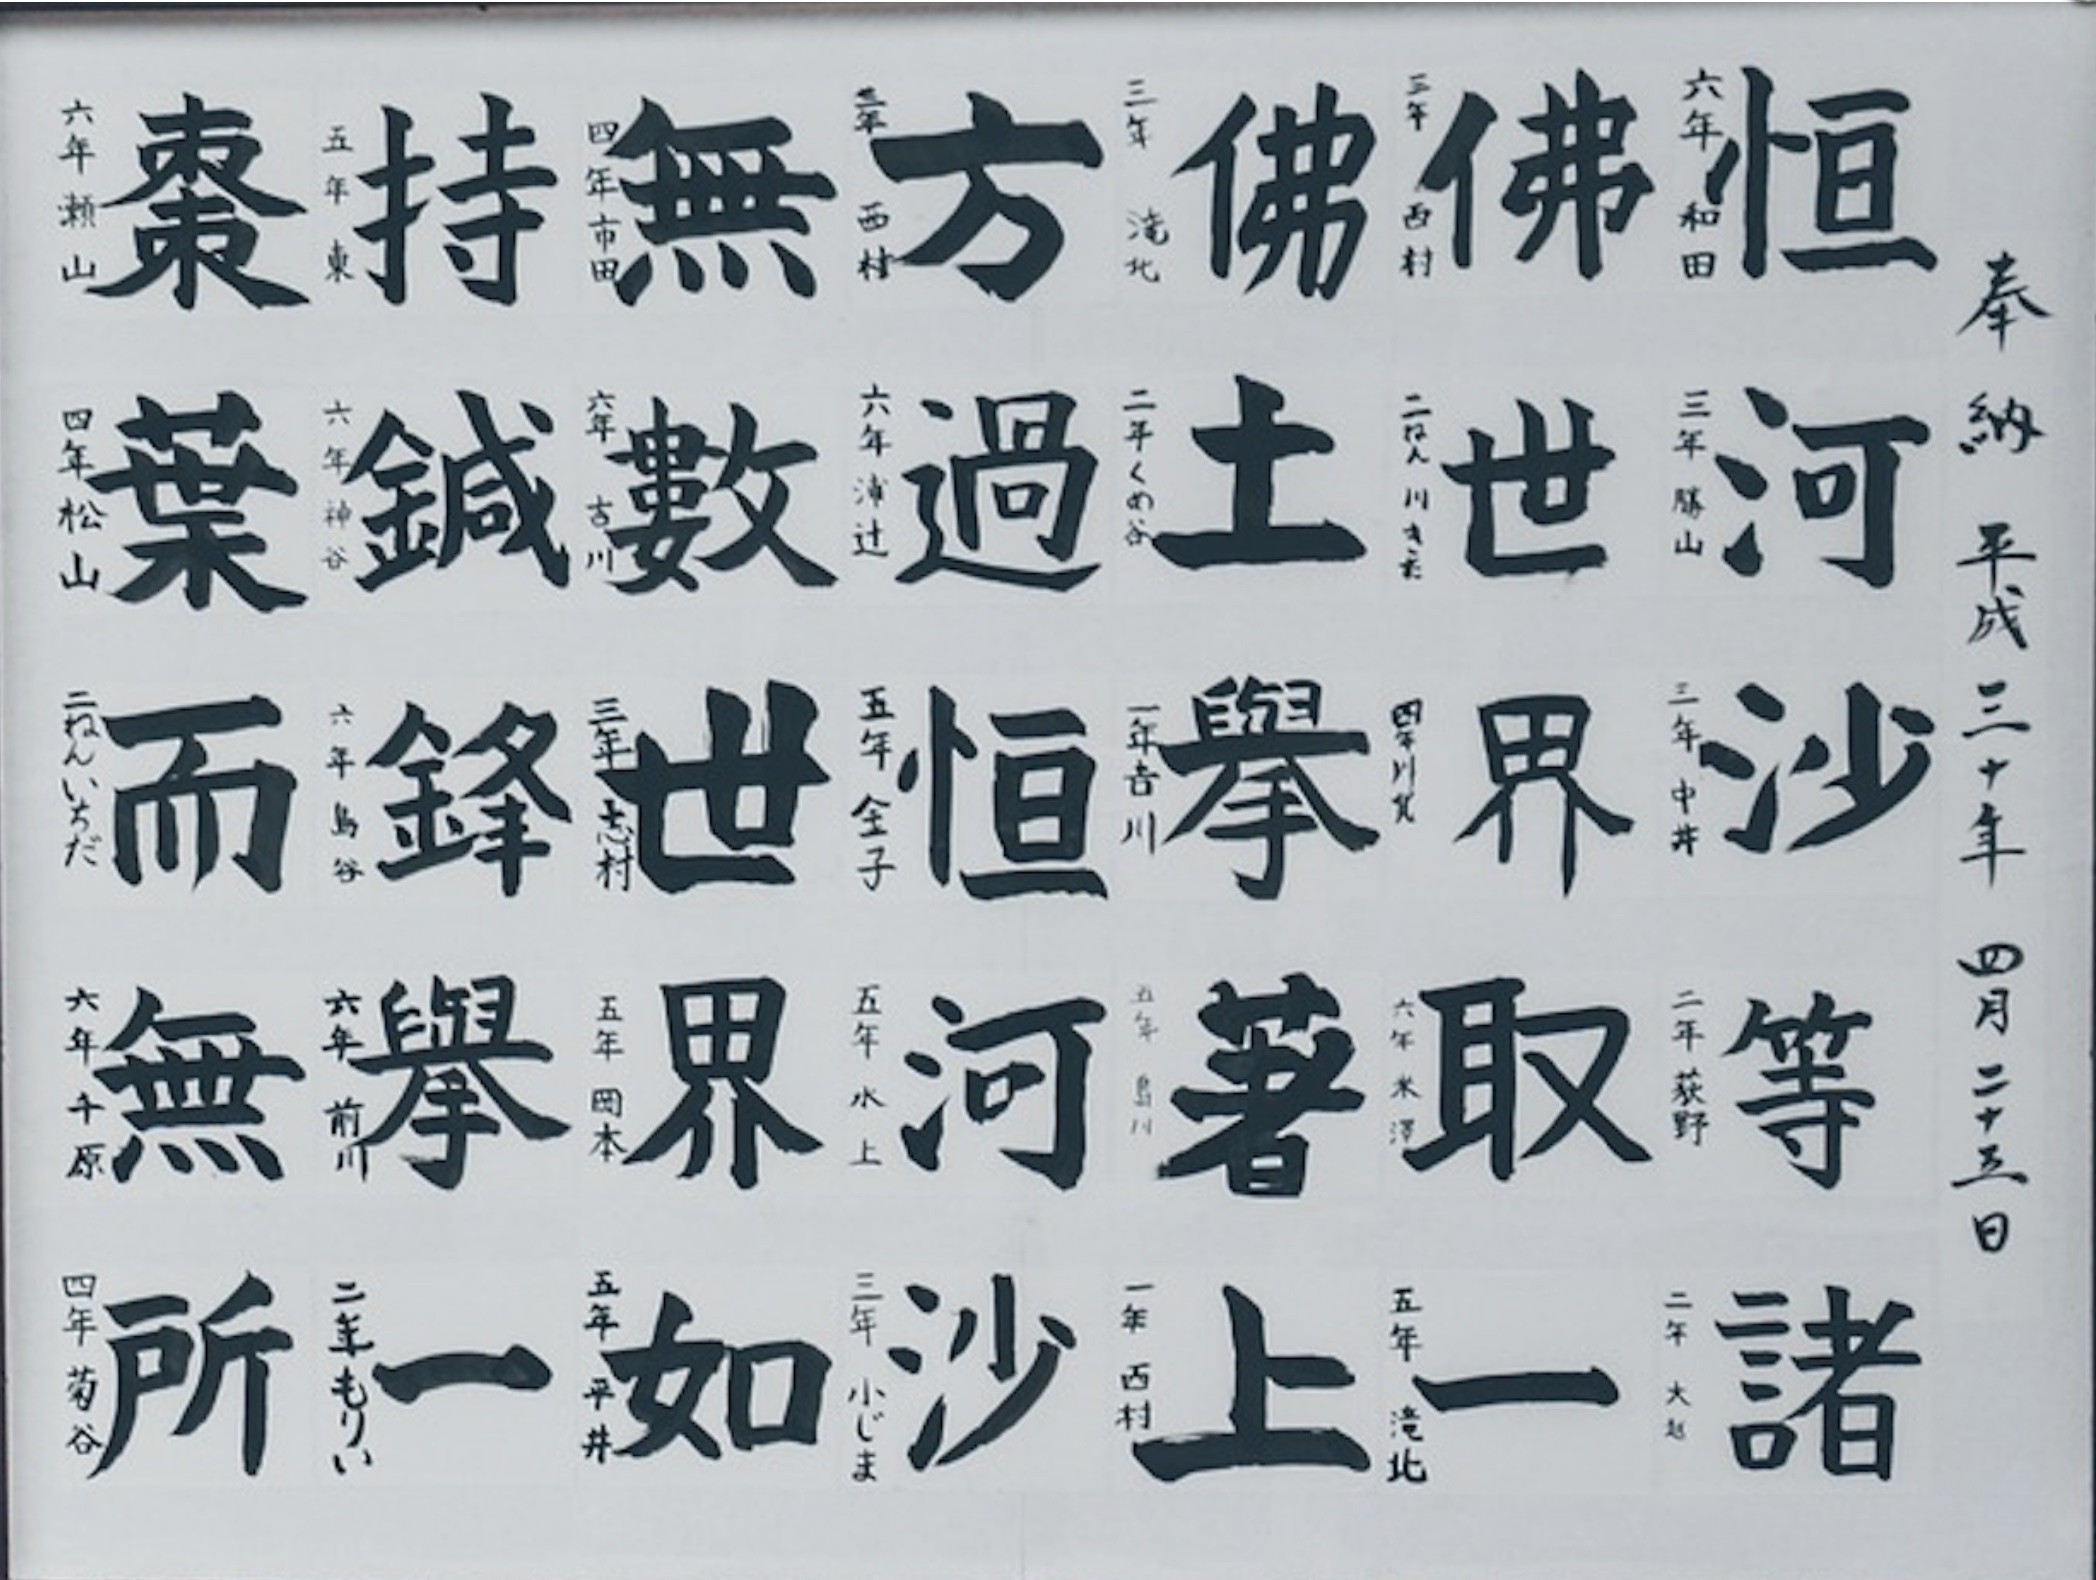 奉納 平成三十年 四月二十五日
恒河沙等諸
六年 和田 三年 勝山 三年 中井 二年 荻野 二年
佛世界取一
三年 西村 二ねん 川きた 四年 川北 六年 米澤 五年 滝北
佛土擧著上
三年 滝北 二年 くめ谷 一年 吉川 五年 島川 一年 西村
方過恒河沙
西村 六年 浦辻 五年 金子 五年 水上 三年 小じま
無數世界如
四年 市田 六年 古川 三年 志村 五年 岡本 五年 平井
持鍼鋒擧一
五年 東 六年 神谷 六年 島谷 六年 前川 二年 もりい
棗葉而無所
六年 瀬山 四年 松山 二ねん いちだ 六年 千原 四年 菊谷